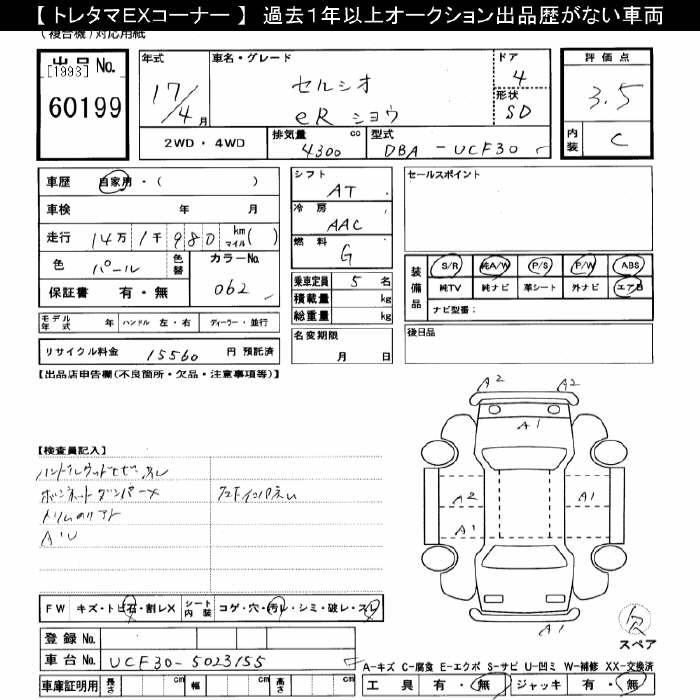 【トレタマEXコーナー】 過去1年以上オークション出品歴がない車両
(複合機)対応用紙
出品 No.
[1993]
60199
年式 車名・グレード ドア 評価点
17/4月 セルシオ 4 3.5
形状
eR ショウ SD
2WD・4WD 排気量 cc 型式 内装 C
4300 DBA-UCF30
車歴 自家用・( )
車検 年 月
走行 14万1千980 km マイル( )
色 パール 色替 カラーNo. 062
保証書 有・無
シフト AT
冷房 AAC
燃料 G
乗車定員 5 名
積載量 kg
総重量 kg
名変期限
月 日
セールスポイント
装備品 S/R 純A/W P/S P/W ABS
純TV 純ナビ 革シート 外ナビ エアB
ナビ型番:
後日品
モデル年式 年 ハンドル 左・右 ディーラー・並行
リサイクル料金 15560 円 預託済
【出品店申告欄(不良箇所・欠品・注意事項等)】
A2 A2
A1
【検査員記入】
ボンネットダンパー×
A2 A1
A1
A'U
FW キズ・トビ石・割レX シート内装 コゲ・穴・汚レ・シミ・破レ・スレ
A1
欠
スペア
登録 No.
車台 No. UCF30-5023155
A-キズ C-腐食 E-エクボ S-サビ U-凹ミ W-補修 XX-交換済
車庫証明用 長さ cm 幅 cm 高さ cm
工具 有・無 ジャッキ 有・無